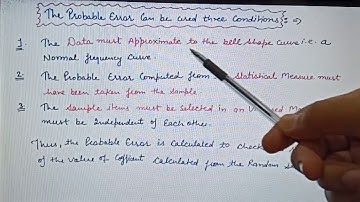 The Probable Error Can be used three Conditions :- ⇒
1. The Data must Approximate to the bell shape curve i.e. a
Normal frequency Curve.
2. The Probable Error Computed from Statistical Measure must
have been taken from the sample.
3. The Sample items must be Selected in an
must be Independent of Each other.
Thus, the Probable Error is Calculated to check
of the value of Coffient Calculated from the Random